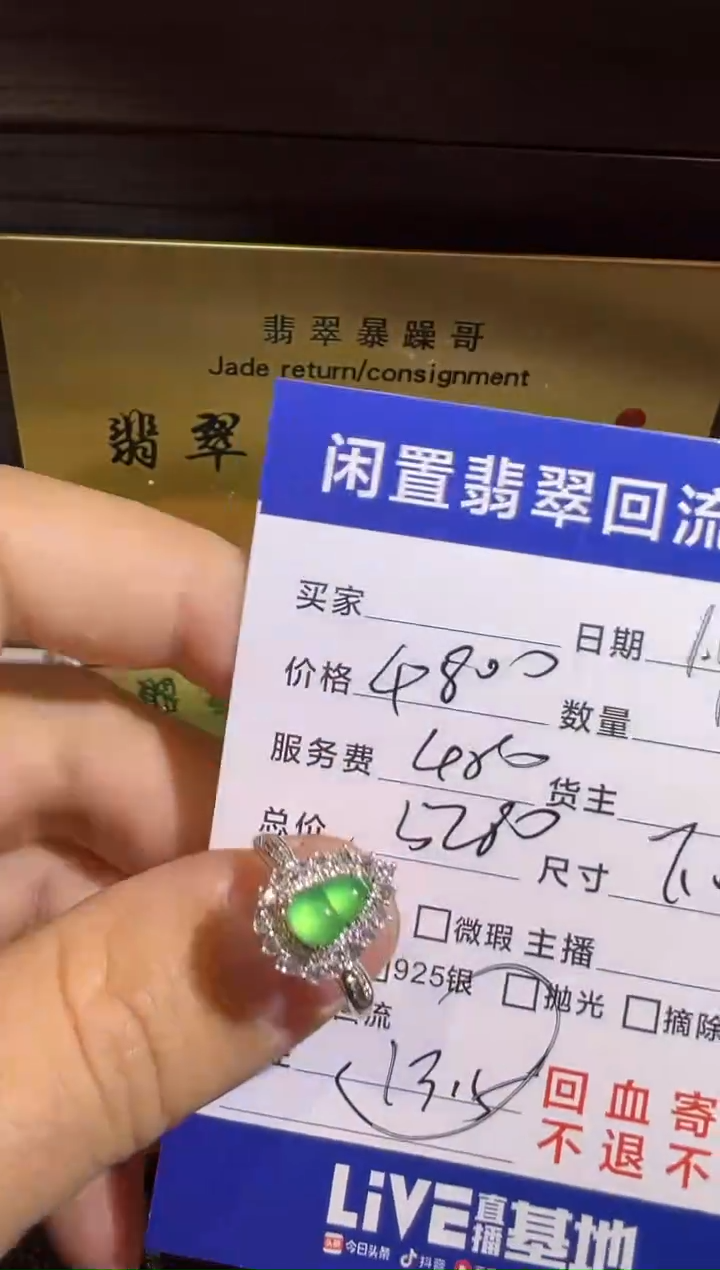 翡翠暴躁哥
Jade return/consignment
翡翠
闲置翡翠回流
买家
日期
价格 4800
数量
服务费 480
货主
总价 5280
尺寸
微瑕 主播
925银 抛光 摘除
流
1315
回血寄
不退不
LiVE直播基地
头条 今日头条 抖音